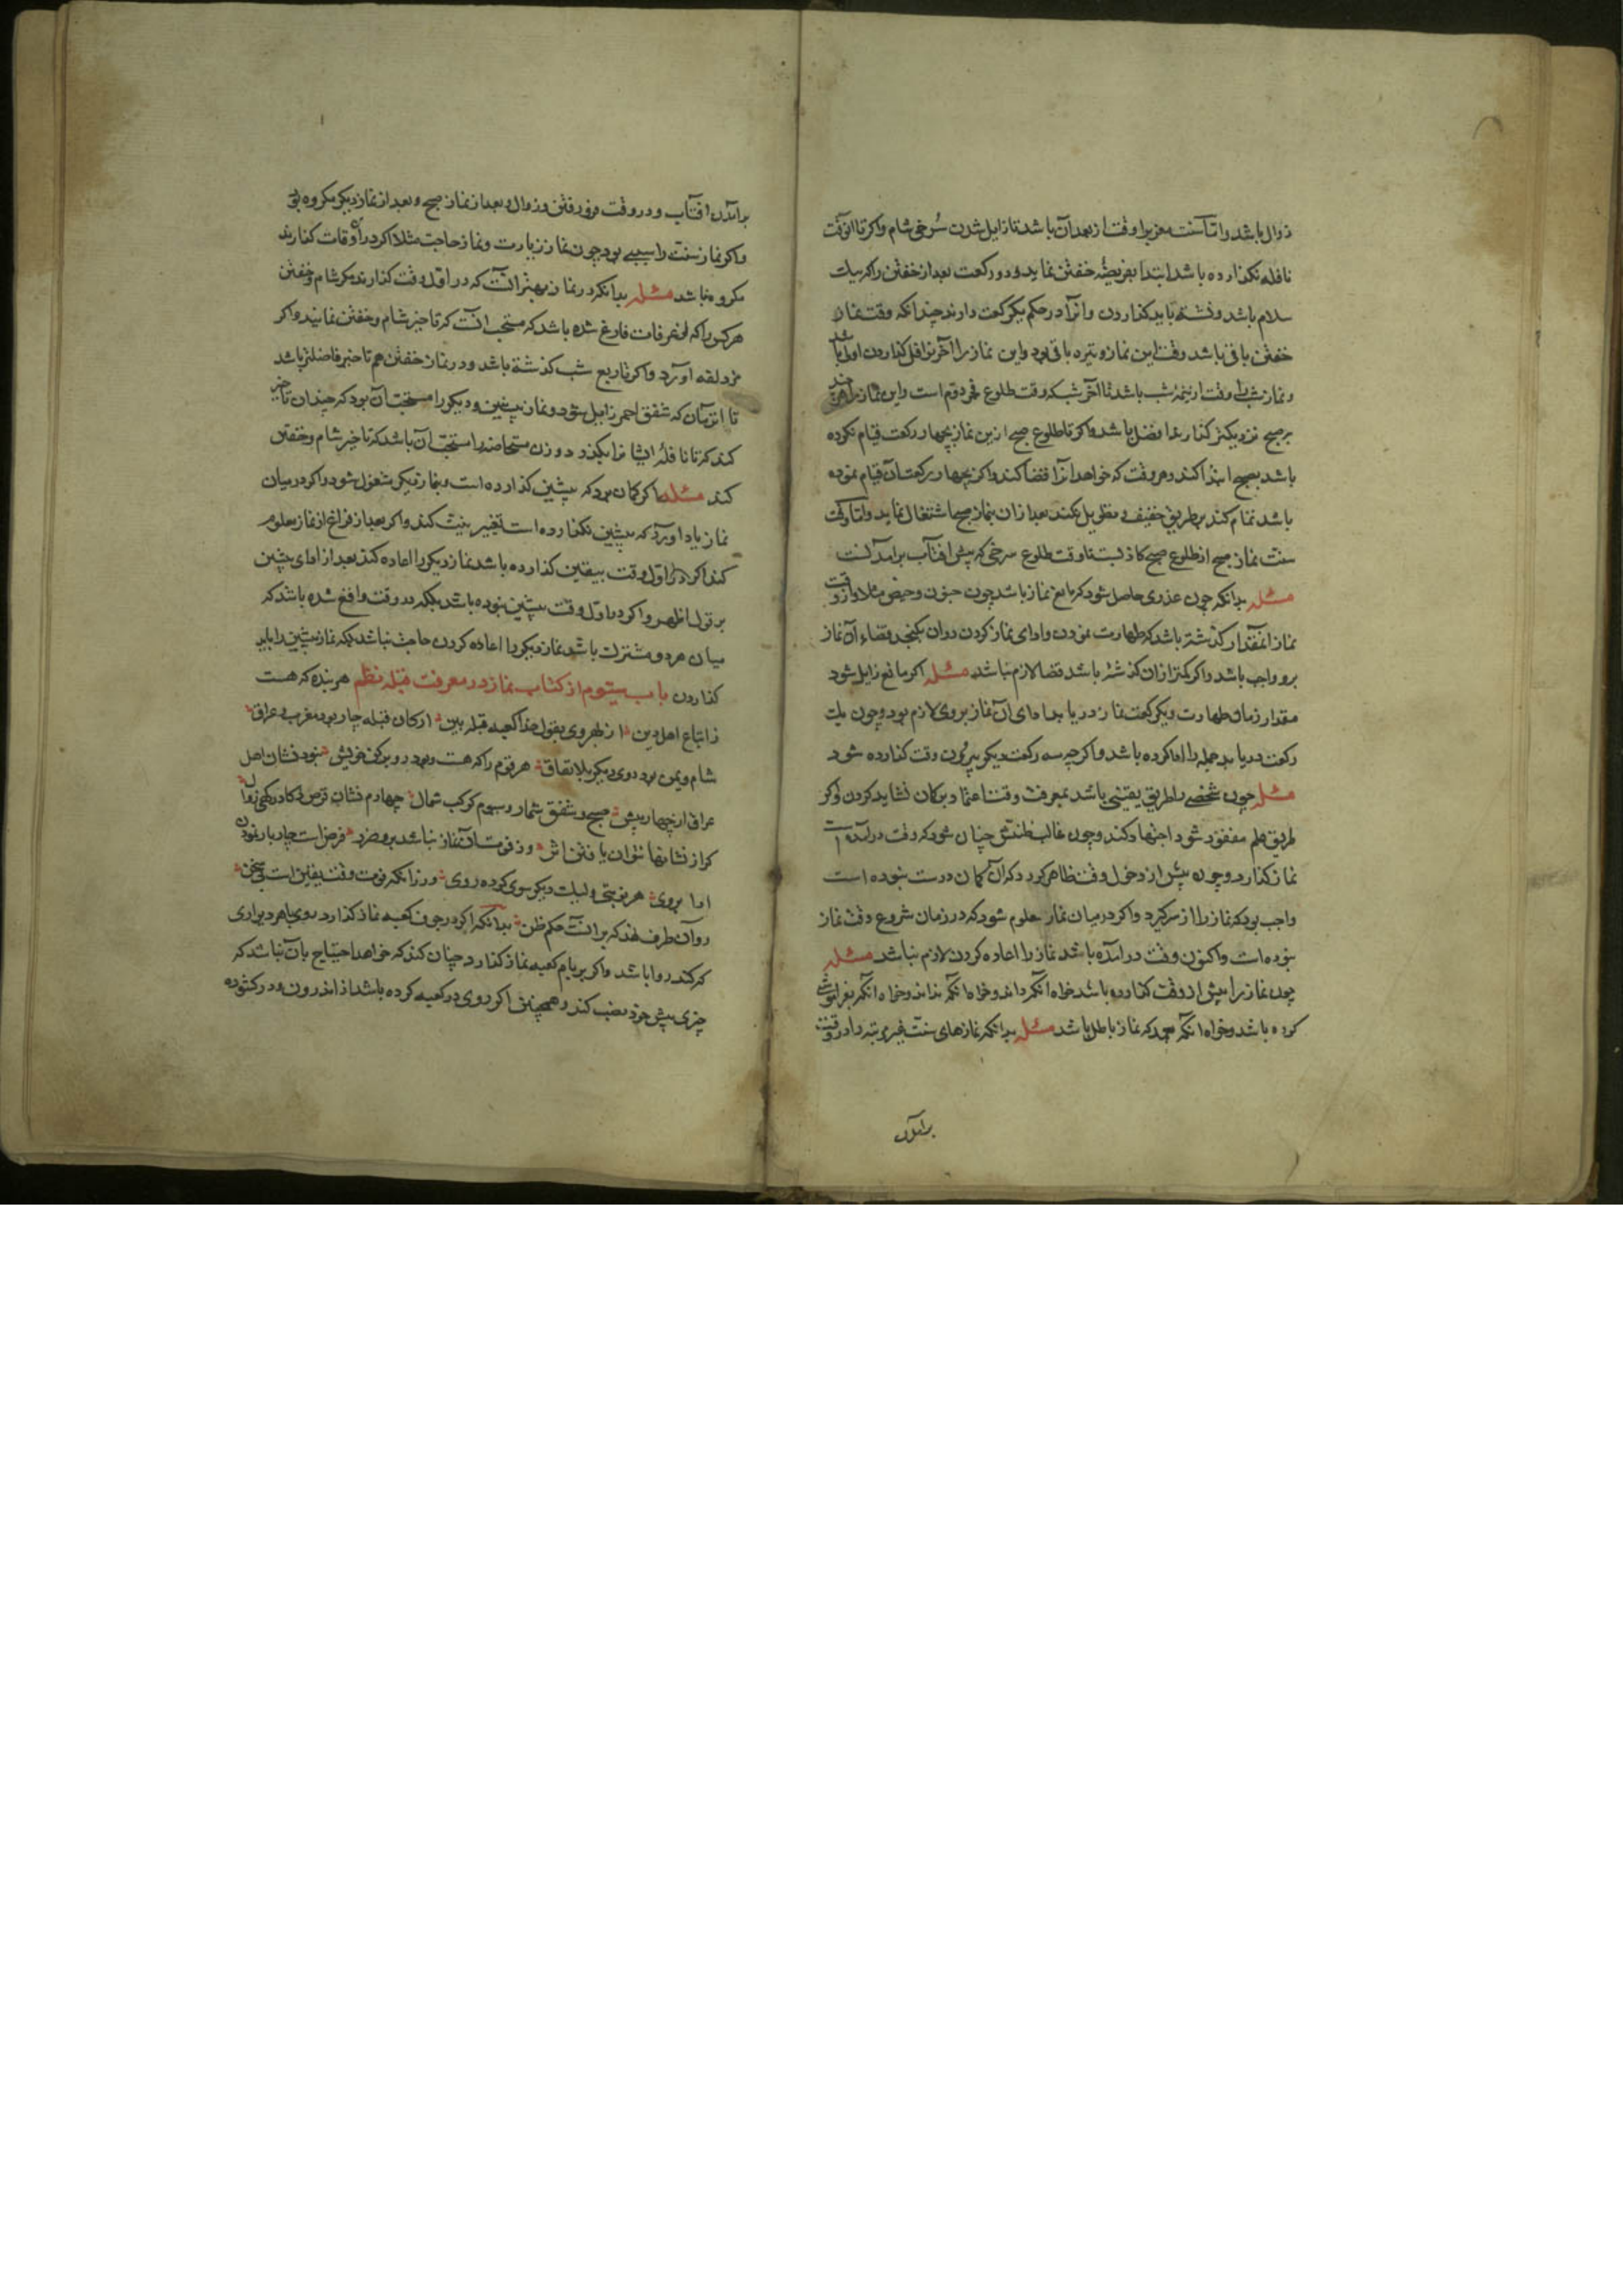 زوال باشد و اما سنت مغرب را وقت از بعد آن باشد تا زایل شدن سُرخی شام و اکر تا آن وقت
نافله نکذارده باشد ابتدا بفریضهٔ خفتن نماید و دو رکعت بعد از خفتن را که بیک
سلام باشد نشسته باید کذاردن و آنرا در حکم یک رکعت دارند چندانکه وقت نماز
خفتن باقی باشد وقت این نماز وتیره باقی بود و این نماز را آخر نوافل کذاردن اولی باشد
و نماز شب را وقت از نیمهٔ شب باشد تا آخر شب که وقت طلوع فجر دوم است و این نماز را هر چند
بر صبح نزدیکتر کذارند افضل باشد و اکر تا طلوع صبح ازین نماز بچهار رکعت قیام نکرده
باشد بصبح ابتدا کند و هر وقت که خواهد آنرا قضا کند و اکر بچهار رکعت آن قیام نموده
باشد تمام کند بر طریق خفیف و تطویل نکند بعد از ان بنماز صبح اشتغال نماید و اما وقت
سنت نماز صبح از طلوع صبح کاذبست تا وقت طلوع سرخی که پیش آفتاب برآمدنست
مسئله بدانکه چون عذری حاصل شود که مانع نماز باشد چون جنون و حیض مثلا و از وقت
نماز آنمقدار کذشته باشد که طهارت نمودن و ادای نماز کردن در ان بکنجد قضاء آن نماز
برو واجب باشد و اکر کمتر از ان کذشته باشد قضا لازم نباشد مسئله اکر مانع زایل شود
مقدار زمان طهارت و یک رکعت نماز دریابد ادای آن نماز بر وی لازم بود و چون یک
رکعت دریابد جمله را ادا کرده باشد و اکر چه سه رکعت دیکر بیرون وقت کذارده شود
مسئله چون شخصی را طریق یقینی باشد بمعرفت وقت اعتماد بر کمان نشاید کردن و اکر
طریق علم مفقود شود اجتهاد کند و چون غالب ظنش چنان شود که وقت درآمده است
نماز کذارد و چون پیش از دخول وقت ظاهر کردد که آن کمان درست نبوده است
واجب بود که نماز را از سر کیرد و اکر در میان نماز معلوم شود که در زمان شروع وقت نماز
نبوده است و اکنون وقت درآمده باشد نماز را اعاده کردن لازم نباشد مسئله
چون نماز را پیش از وقت کذارده باشد خواه آنکه داند و خواه آنکه نداند و خواه آنکه بفراموشی
کرده باشد و خواه آنکه بعمد که نماز باطل باشد مسئله بدانکه نمازهای سنت غیر مرتبه را در وقت
برآمدن
برآمدن آفتاب و در وقت فرو رفتن و زوال و بعد از نماز صبح و بعد از نماز دیکر مکروه بود
و اکر نماز سنت را سببی بود چون نماز زیارت و نماز حاجت مثلا اکر در آن اوقات کذارند
مکروه نباشد مسئله بدانکه در نماز بهتر آنست که در اول وقت کذارند مکر شام و خفتن
هر کس را که از عرفات فارغ شده باشد که مستحب آنست که تاخیر شام و خفتن نمایند و اکر
مزدلفه آورد و اکر تا ربع شب کذشته باشد و در نماز خفتن هم تاخیر فاضلتر باشد
تا آنزمان که شفق احمر زایل شود و نماز پیشین و دیکر را مستحب آن بود که چندان تاخیر
کند که تا نافلهٔ ایشانرا بکذارد و زن مستحاضه را مستحب آن باشد که تاخیر شام و خفتن
کند مسئله اکر کمان برد که پیشین کذارده است و بنماز دیکر مشغول شود و اکر در میان
نماز یاد آورد که پیشین نکذارده است تغییر نیت کند و اکر بعد از فراغ از نماز معلوم
کند اکر در اول وقت بیقین کذارده باشد نماز دیکر را اعاده کند بعد از ادای پیشین
بر قول اظهر و اکر در اول وقت پیشین نبوده باشد بلکه در وقت واقع شده باشد که
میان هر دو مشترک باشد نماز دیکر را اعاده کردن حاجت نباشد بلکه نماز پیشین را باید
کذاردن باب سیوم از کتاب نماز در معرفت قبله نظم هر بنده که هست
ز اتباع اهل دین از بهر وی بقول خدا کعبه قبله بین ارکان قبله چار بود مغرب و عراق
شام و یمن بود دوی دیکر بلا نفاق هر قوم را که هست بود رو برکن خویش نبود نشان اهل
عراق از چهار بیش صبح و شفق شمار و سیوم کوکب شمال چهارم نشان قرص ذکا در کهی زوال
کر از نشانها نتوان یافتن اثر و ز فوت آن نماز نباشد برو ضرر فرض است چار بار نمودن
ادا بروی هر نوبتی ولیک دیکر سوی کرده روی ور زانکه فوت وقت یقین است بی سخن
رو آن طرف نهد که بر آنست حکم ظن بدانکه اکر در جوف کعبه نماز کذارد روی بهر دیواری
که کند روا باشد و اکر بر بام کعبه نماز کذارد چنان کند که خواهد احتیاج بآن نباشد که
چیزی پیش خود نصب کند و همچنین اکر روی در کعبه کرده باشد از اندرون و در کشوده